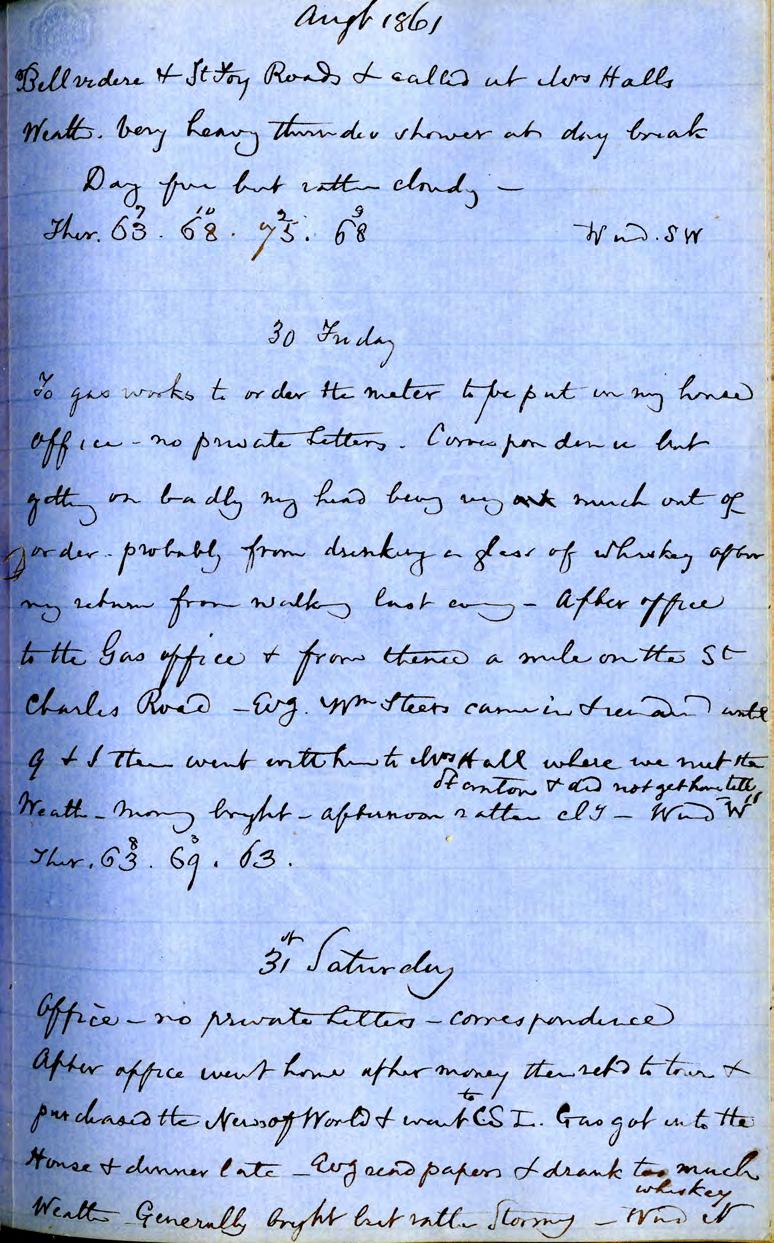 Augt 1861
Bellvidere & St Foy Roads & called at Mrs Halls
Weath. Very heavy thunder shower at day break
Day fine but rather cloudy –
7 10 2 9
Ther. 63 . 68 . 75 . 68 Wind . SW
30 Friday
To gas works to order the meter to be put in my house
Office – no private letters . Correspondence but
getting on badly my head being very much out of
order . probably from drinking a glass of whiskey after
my return from walking last eveng – After office
to the Gas office & from thence a mile on the St
Charles Road – Evg. Wm Steers came in & remaind until
9 & I then went with him to Mrs Hall where we met the
& did not get home till 11
Weath – Morng bright – afternoon rather cly – Wind W
8 3
Ther . 63 . 69 . 63 .
31st Saturday
Office – no private letters – correspondence
After office went home after money then retd to town &
purchased the News of World & went to CSI . Gas got into the
House & dinner late – Evg read papers & drank too much
whiskey
Weath Generally bright but rather Stormy – Wind N